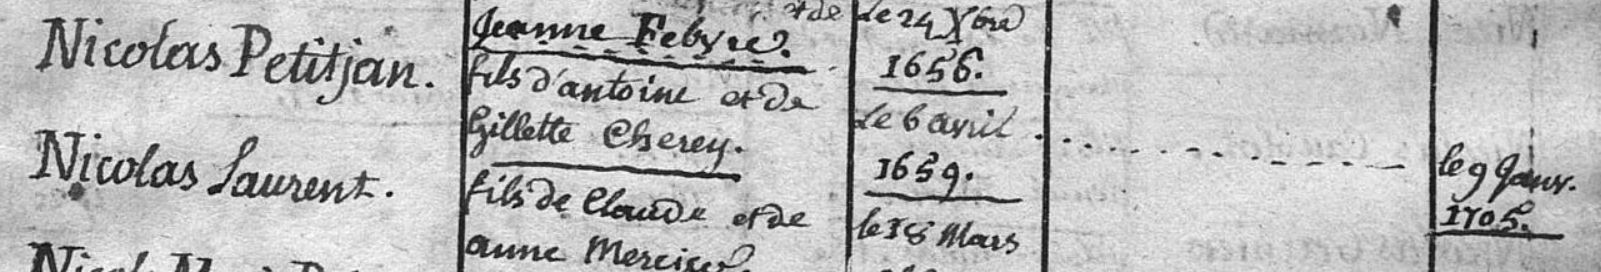 et de
Jeanne Febvre.
le 24 Xbre
1656.
Nicolas Petitjan.
fils d'antoine et de
Gillette Cherey.
le 6 avril
1659.
Nicolas Laurent.
fils de Claude et de
anne Mercier.
le 18 Mars
le 9 Janv.
1705.